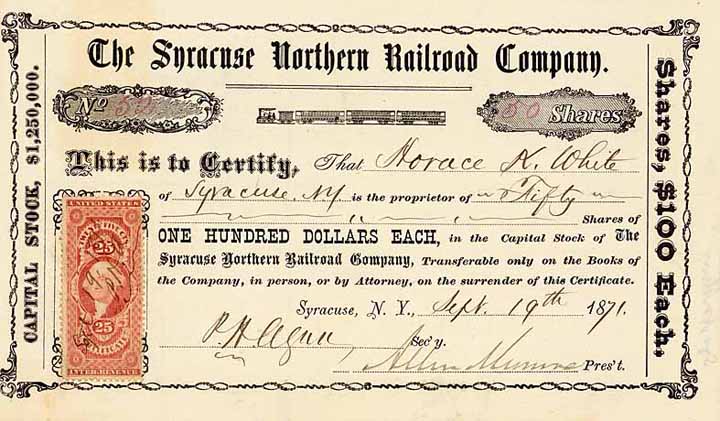 The Syracuse Northern Railroad Company.
No 50 Shares
This is to Certify, That Horace K. White
of Syracuse, NY is the proprietor of Fifty
Shares of
ONE HUNDRED DOLLARS EACH, in the Capital Stock of The
Syracuse Northern Railroad Company, Transferable only on the Books of
the Company, in person, or by Attorney, on the surrender of this Certificate.
Syracuse, N. Y., Sept. 19th 1871.
P. H. Agan, Sec'y.
Allen Munroe Pres't.
CAPITAL STOCK, $1,250,000.
Shares, $100 Each.
UNITED STATES
25
25
INTER. REVENUE